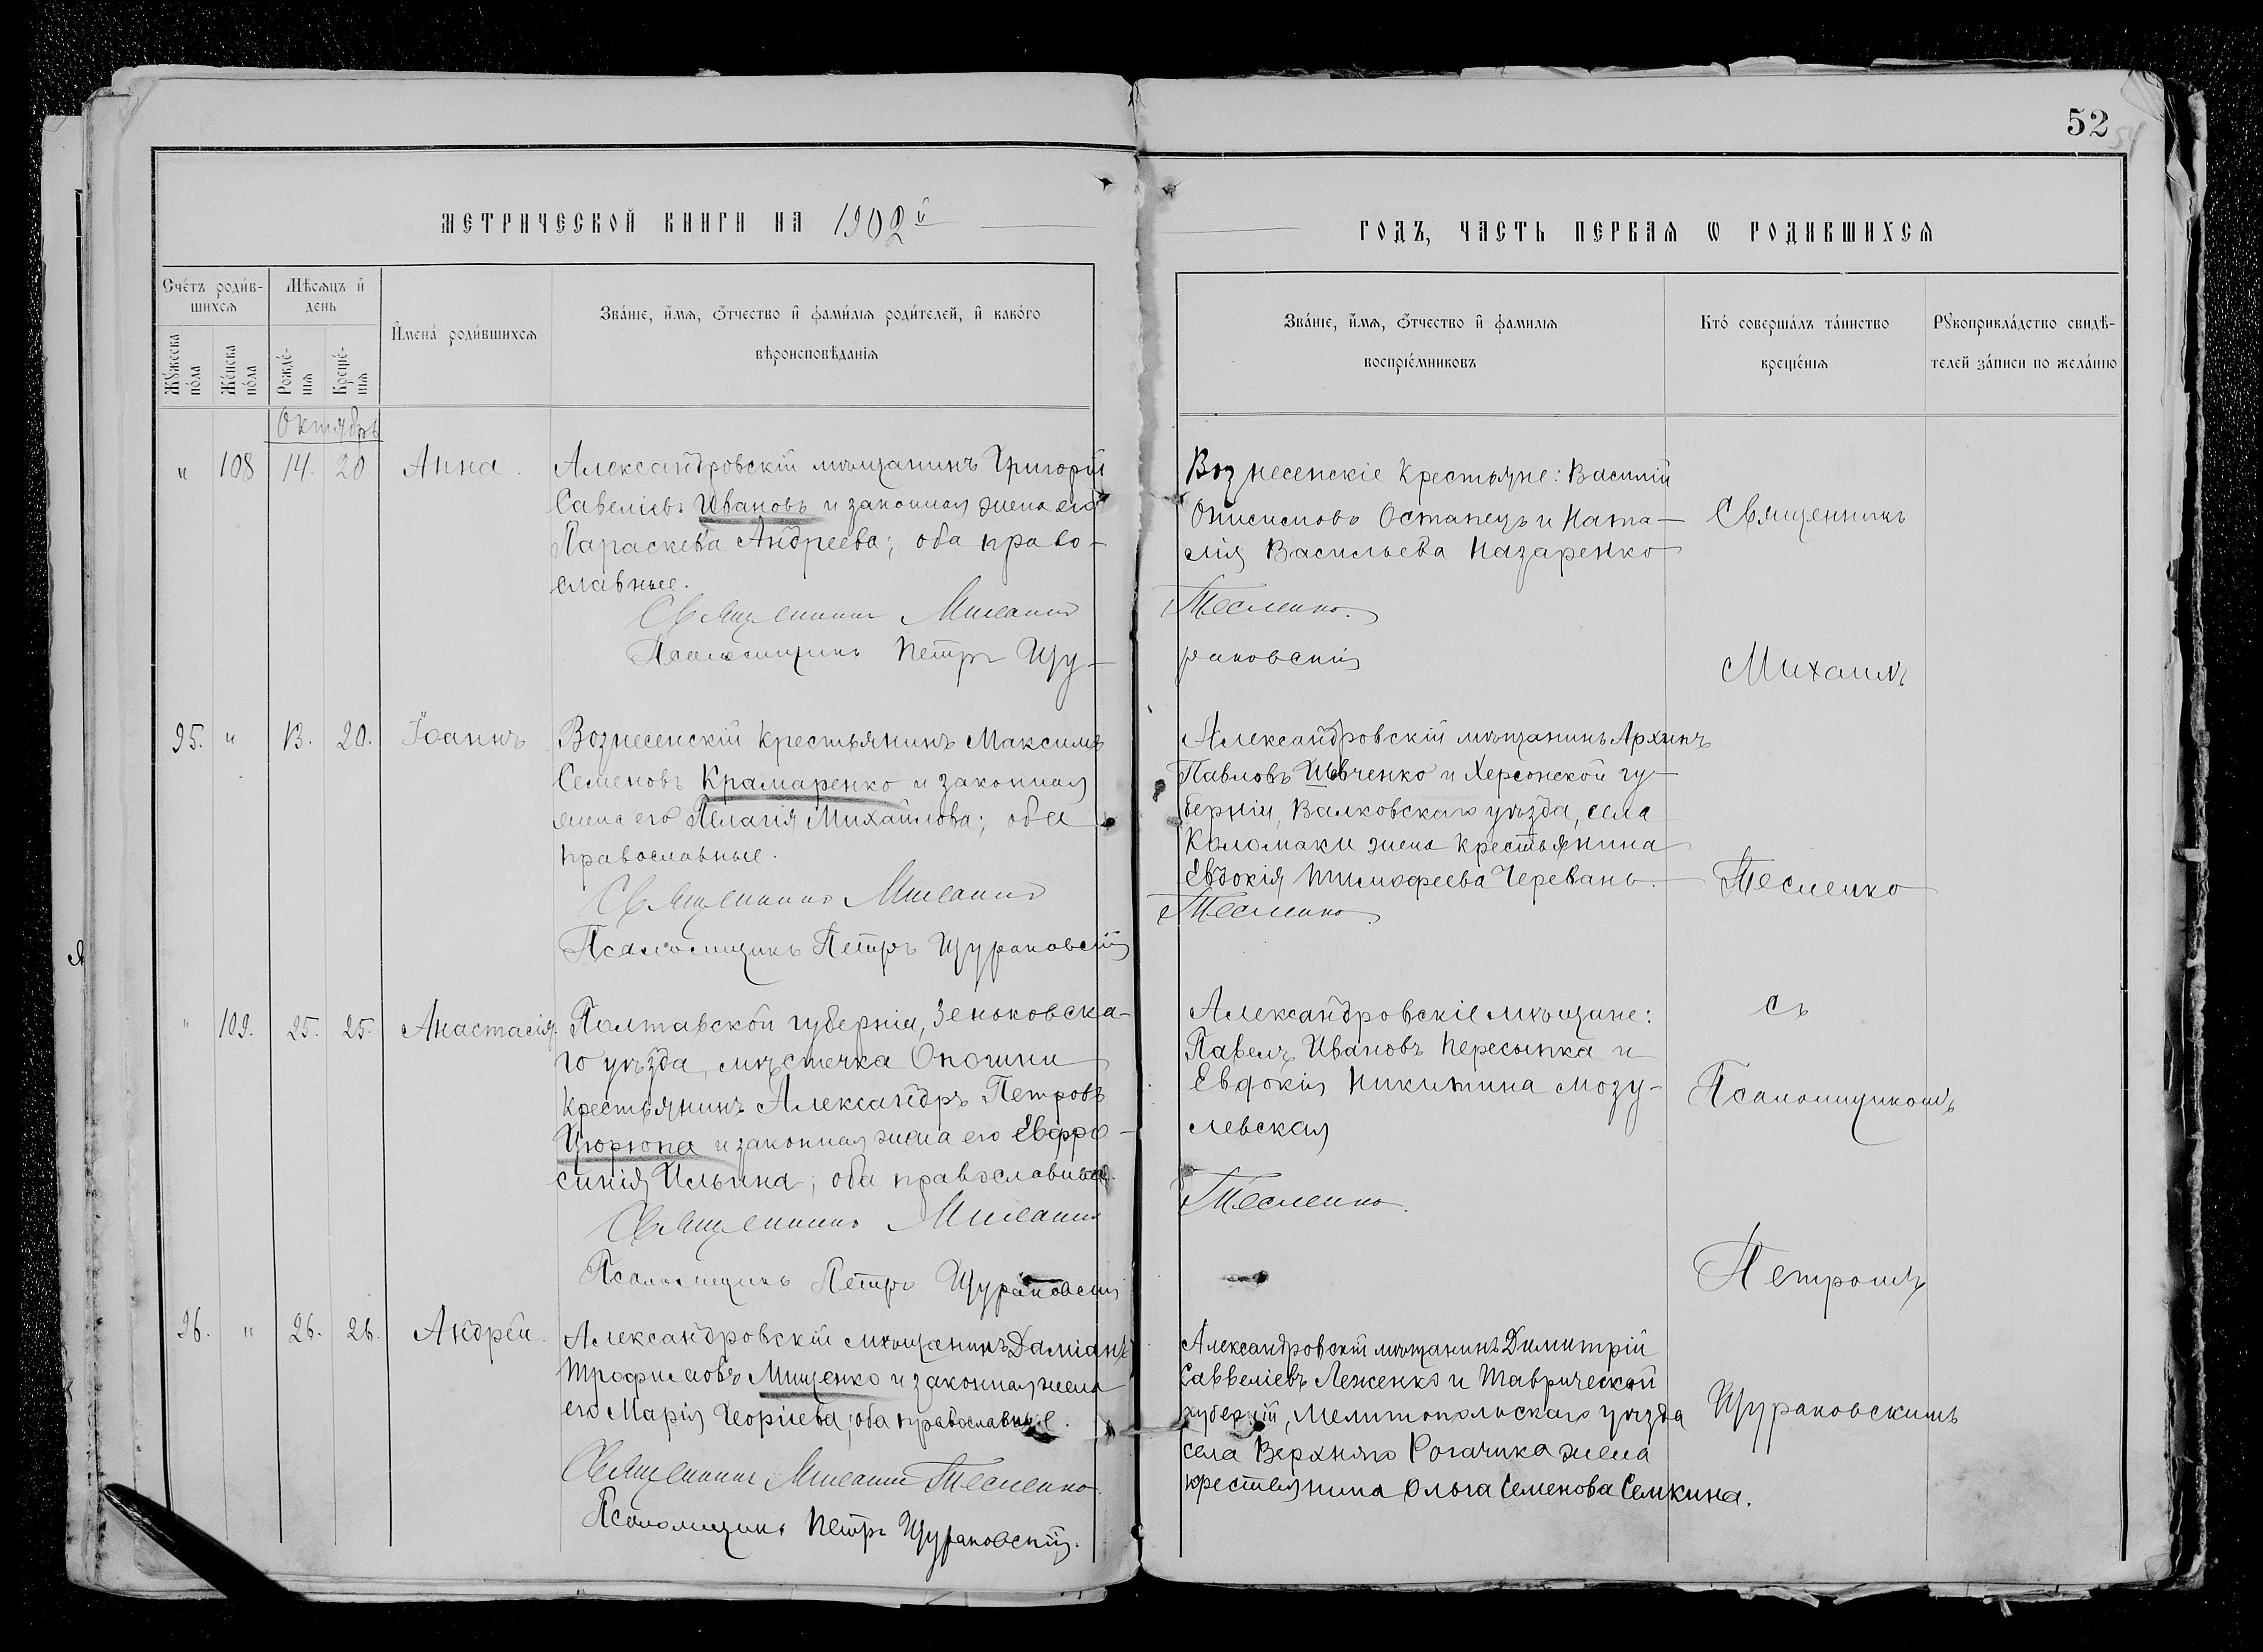 52
54
МЕТРИЧЕСКОЙ КНИГИ НА 1902й
ГОДЪ, ЧАСТЬ ПЕРВАЯ Ѡ РОДИВШИХСЯ
Счётъ роди́в-
шихся
Мѣсяцъ и
день
Имена́ роди́вшихся
Зва́нїе, и́мя, о́тчество и фами́лїя роди́телей, и како́го
вѣроисповѣ́данїя
Му́жеска
по́ла
Же́нска
по́ла
Рожде́-
нїя
Креще́-
нїя
Зва́нїе, и́мя, о́тчество и фамилїя
воспрїе́мниковъ
Кто́ соверша́лъ та́инство
креще́нїя
Рукоприкла́дство свидѣ́-
телей за́писи по жела́нїю
Октябрь
" 108 14. 20 Анна.
Александровскій мѣщанинъ Григорій
Савеліевъ Ивановъ и законная жена его
Параскева Андреева; оба право-
славные.
Священникъ Михаилъ
Псаломщикъ Петръ Щу-
Вознесенскіе крестьяне: Василій
Онисимовъ Останецъ и Ната-
лія Васильева Назаренко
Тесленко.
раковскій
Священникъ
Михаилъ
95. " 13. 20. Іоаннъ
Вознесенскій крестьянинъ Максимъ
Семеновъ Крамаренко и законная
жена его Пелагія Михайлова; оба
православные.
Священникъ Михаилъ
Псаломщикъ Петръ Щураковскій
Александровскій мѣщанинъ Архипъ
Павловъ Шевченко и Херсонской гу-
берніи, Валковскаго уѣзда, села
Коломаки жена крестьянина
Евдокія Тимофеева Черевань.
Тесленко
Тесленко
" 109. 25. 25. Анастасія
Полтавской губерніи, Зеньковска-
го уѣзда, мѣстечка Опошни
крестьянинъ Александръ Петровъ
Цюрюпа и законная жена его Евфро-
синія Ильина; оба православные.
Священникъ Михаилъ
Псаломщикъ Петръ Щураковскій
Александровскіе мѣщане:
Павелъ Ивановъ Пересыпка и
Евдокія Никитина Мозу-
левская
Тесленко.
съ
Псаломщикомъ
Петромъ
96. " 26. 26. Андрей.
Александровскій мѣщанинъ Даміанъ
Трофимовъ Мищенко и законная жена
его Марія Георгіева; оба православные.
Священникъ Михаилъ Тесленко.
Псаломщикъ Петръ Щураковскій.
Александровскій мѣщанинъ Димитрій
Саввеліевъ Леженко и Таврической
губерніи, Мелитопольскаго уѣзда
села Верхняго Рогачика жена
крестьянина Ольга Семенова Семкина.
Щураковскимъ